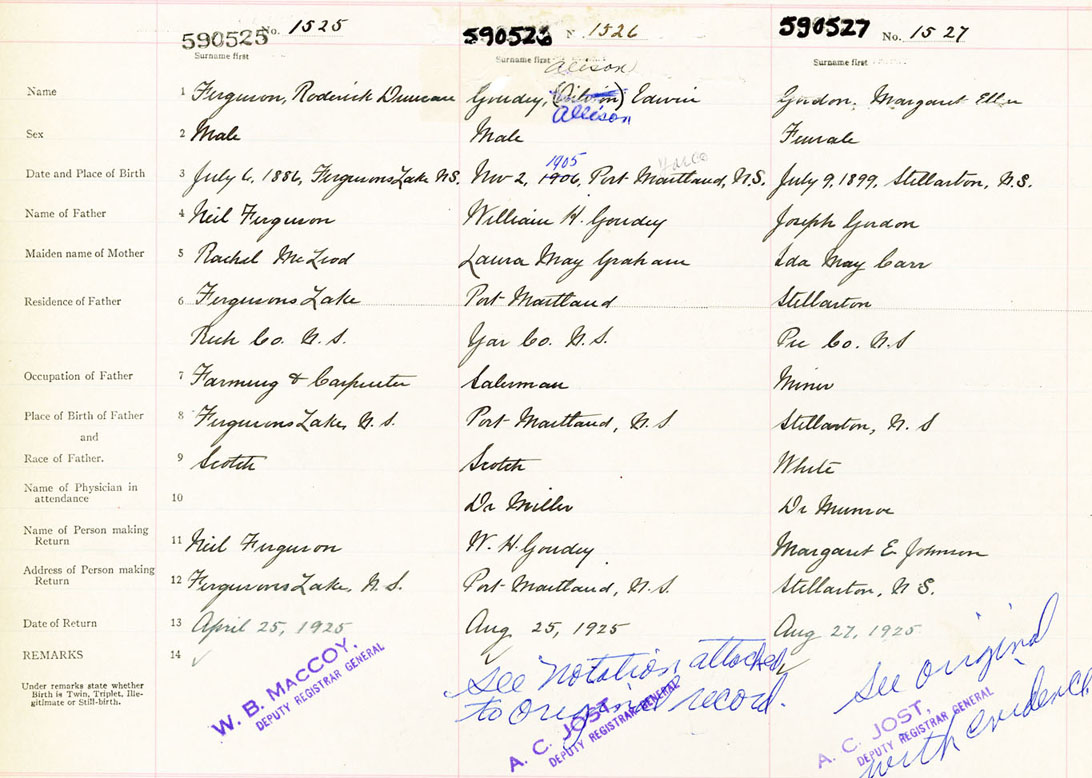 590525 No. 1525 590526 N 1526 590527 No. 1527
Surname first Surname first Surname first
alison
Name 1 Ferguson, Roderick Duncan Goudey, ( ) Edwin Gordon, Margaret Ellen
Allison
Sex 2 Male Male Female
1905
Date and Place of Birth 3 July 6, 1886, Fergusons Lake N.S. Nov 2, 1906, Port Maitland, N.S. July 9, 1899, Stellarton, N.S.
Name of Father 4 Neil Ferguson William H. Goudey Joseph Gordon
Maiden name of Mother 5 Rachel McLeod Laura May Graham Ida May Carr
Residence of Father 6 Fergusons Lake Port Maitland Stellarton
Rich Co. N.S. Yar Co. N.S. Pic Co. N.S
Occupation of Father 7 Farming & Carpenter Salesman Miner
Place of Birth of Father 8 Fergusons Lake, N.S. Port Maitland, N.S Stellarton, N.S
and
Race of Father. 9 Scotch Scotch White
Name of Physician in
attendance 10 Dr Miller Dr Munroe
Name of Person making
Return 11 Neil Ferguson W. H. Goudey Margaret E. Johnson
Address of Person making
Return 12 Fergusons Lake, N.S. Port Maitland, N.S Stellarton, N S.
Date of Return 13 April 25, 1925 Aug 25, 1925 Aug 27, 1925
REMARKS 14 ✓
Under remarks state whether
Birth is Twin, Triplet, Ille-
gitimate or Still-birth.
W. B. MacCOY,
DEPUTY REGISTRAR GENERAL
See Notation attached
to Original record.
A. C. JOST,
DEPUTY REGISTRAR GENERAL
See original
with evidence
A. C. JOST,
DEPUTY REGISTRAR GENERAL